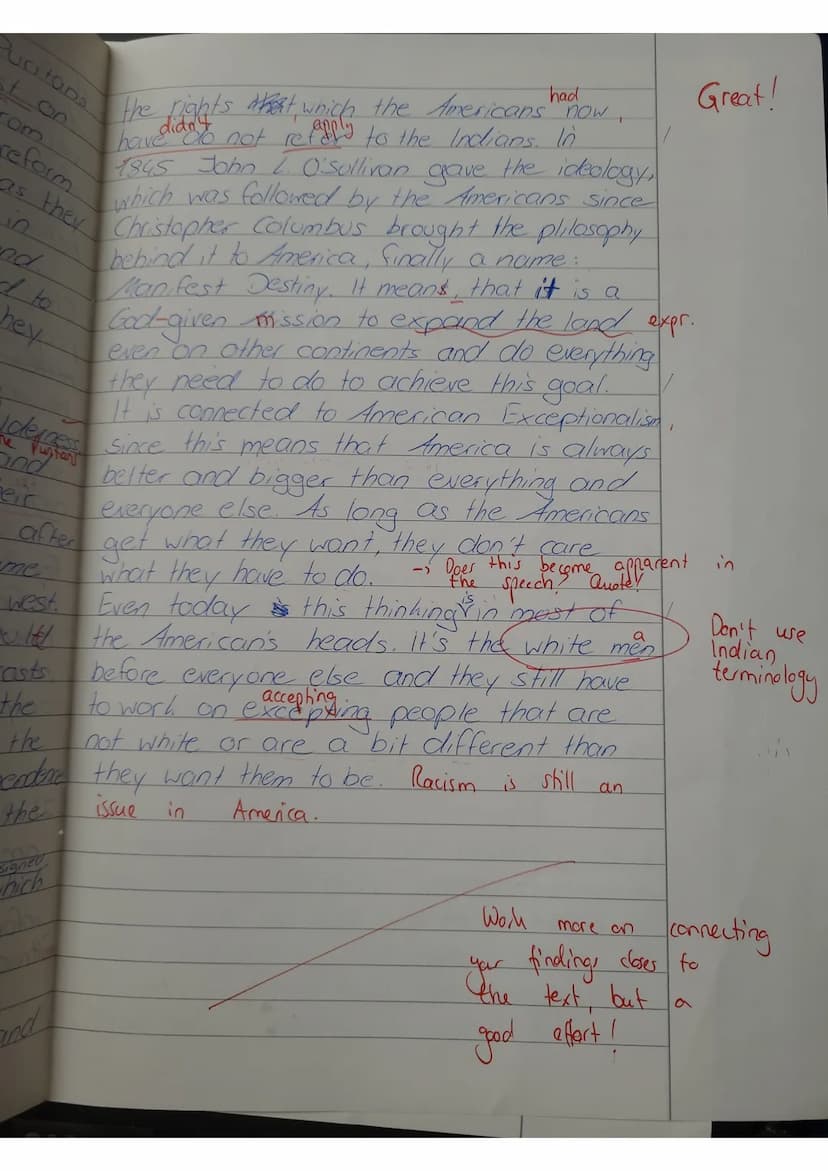 Puritans
st on
rom
reform
as they
in
nd
d to
they
ilderness
the Puritans
and
eir
after
me
west.
asts
the
the
the
signed
which
and
had
Great!
the rights which the Americans now,
didn't apply
have do not refer to the Indians. In
1845 John L. O'Sullivan gave the ideology,
which was followed by the Americans since
Christopher Columbus brought the philosophy
behind it to America, finally a name:
Manifest Destiny. It means, that it is a
God-given mission to expand the land expr.
even on other continents and do everything
they need to do to achieve this goal.
It is connected to American Exceptionalism,
since this means that America is always
better and bigger than everything and
everyone else. As long as the Americans
get what they want, they don't care
what they have to do. → Does this become apparent in
the speech? Quote!
is
Even today is this thinking in most of
the American's heads. It's the white men
a
Don't use
Indian
terminology
before everyone else and they still have
accepting
to work on excepting people that are
not white or are a bit different than
they want them to be. Racism is still an
issue in America.
Work more on connecting
your findings closer to
the text, but a
good effort!